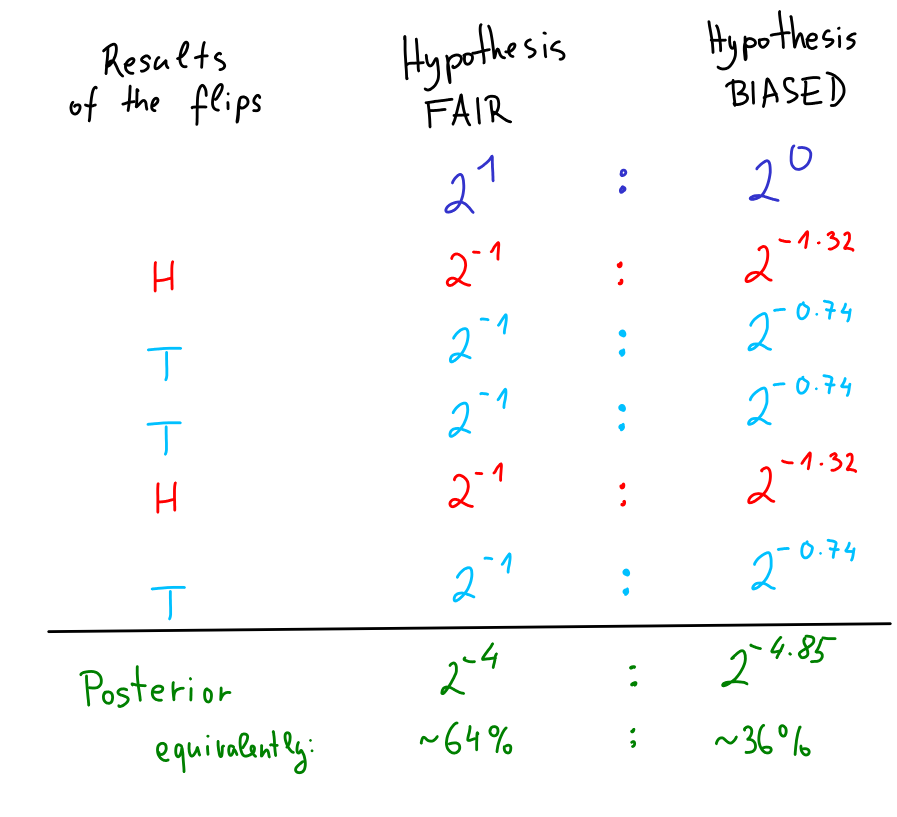 Results of the flips
Hypothesis FAIR
Hypothesis BIASED
2^1 : 2^0
H 2^-1 : 2^-1.32
T 2^-1 : 2^-0.74
T 2^-1 : 2^-0.74
H 2^-1 : 2^-1.32
T 2^-1 : 2^-0.74
Posterior 2^-4 : 2^-4.85
equivalently: ~64% : ~36%